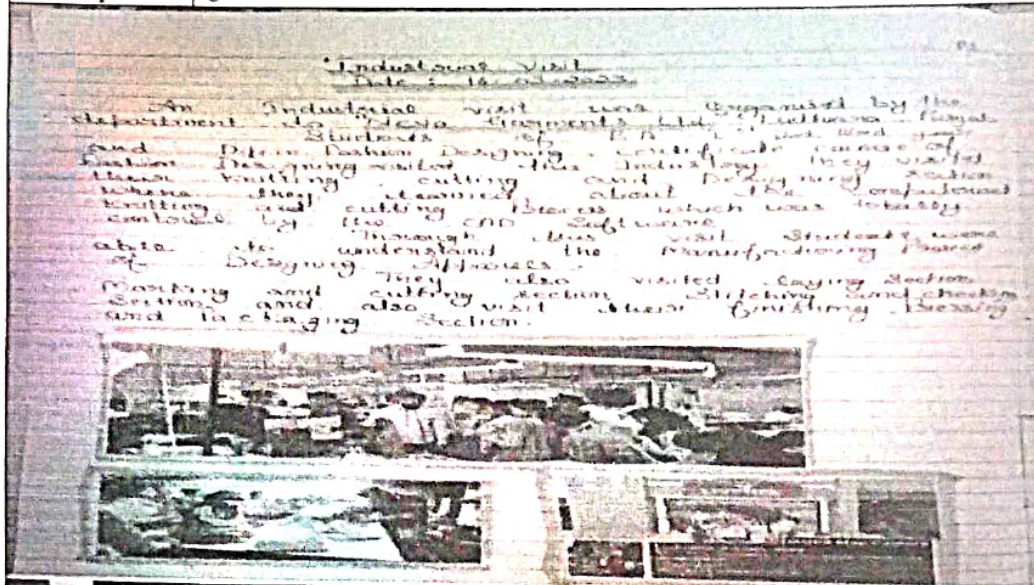 Industrial Visit
Date : 2023
An Industrial visit was Organised by the
department to Garments Ltd. Ludhiana Punjab
Students of B.A I and year
and Dip.in Fashion Designing, certificate course of
Fashion Designing visited this Industry. They visited
their Knitting, cutting and Designing section
where they learned about the
Knitting and cutting which was totally
by the CAD Software.
Through this visit students were
able to understand the Manufacturing
of Designing Apparels.
They also visited Laying section
Marking and cutting section, Stitching and checking
Section and also visit their finishing Pressing
and Packaging Section.